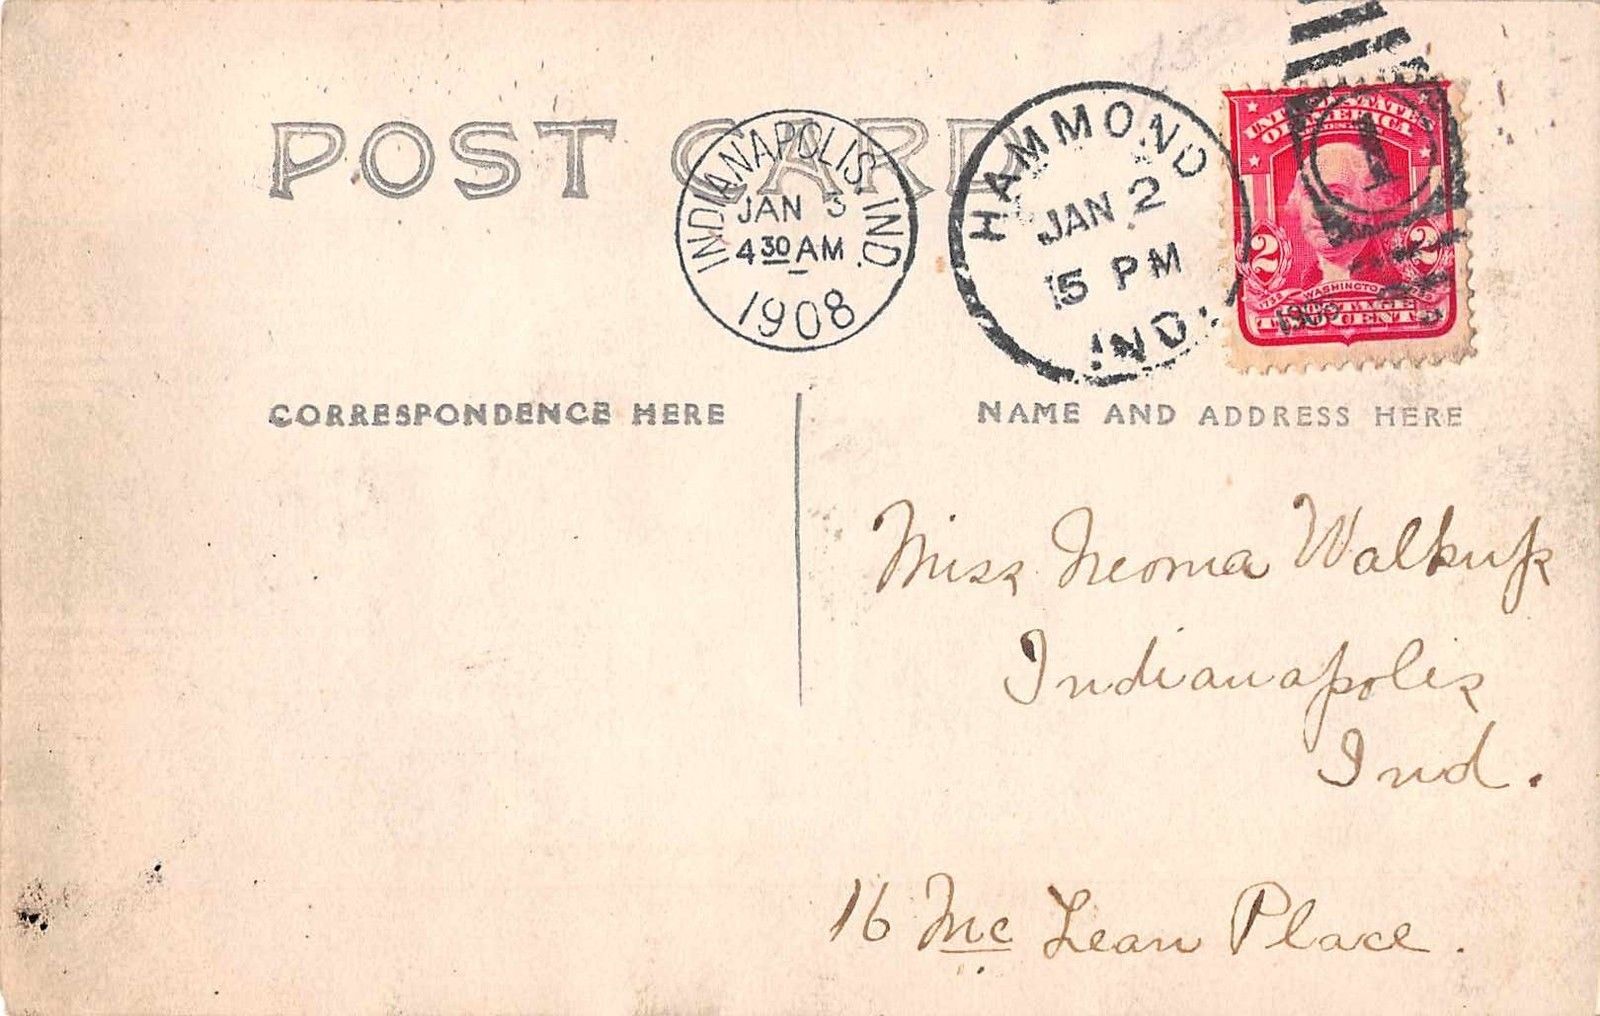 POST CARD
INDIANAPOLIS, IND.
JAN 3
4 30 AM
1908
HAMMOND
JAN 2
5 PM
IND.
1
UNITED STATES
OF AMERICA
2 2
WASHINGTON
POSTAGE
TWO CENTS
CORRESPONDENCE HERE
NAME AND ADDRESS HERE
Miss Neoma Walkup
Indianapolis
Ind.
16 Mc Lean Place.